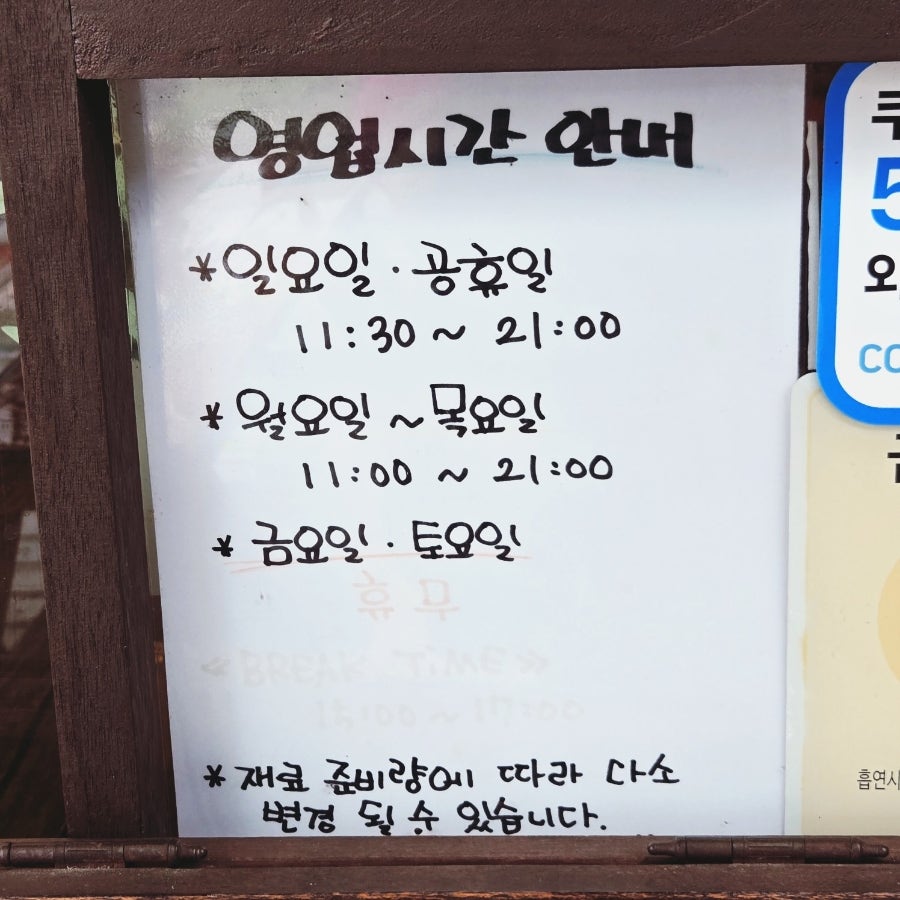 영업시간 안내
*일요일·공휴일
11:30 ~ 21:00
*월요일~목요일
11:00 ~ 21:00
*금요일·토요일
휴무
《BREAK TIME》
15:00 ~ 17:00
*재료 준비량에 따라 다소
변경 될 수 있습니다.
쿠
5
오
CO
흡연시